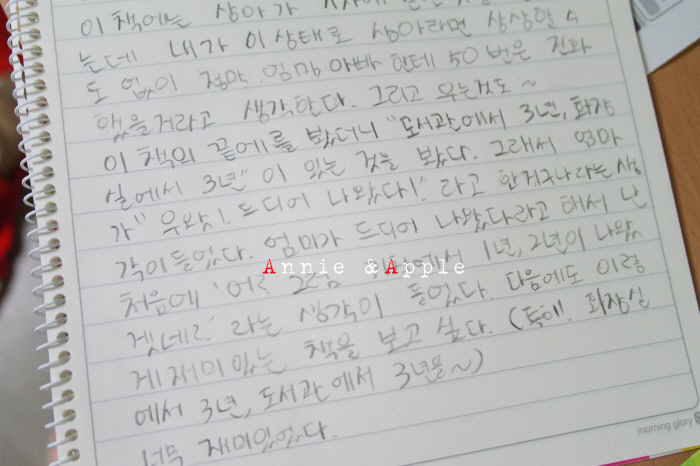 이 책에는 상아가
는데 내가 이 상태로 상아라면 상상할 수
도 없이 정말 엄마 아빠 한테 50번은 전화
했을거라고 생각한다. 그리고 우는것도~
이 책의 끝에를 봤더니 "도서관에서 3년, 화장
실에서 3년" 이 있는 것을 봤다. 그래서 엄마
가 "우왔! 드디어 나왔다!" 라고 한게구나라는 생
각이 들었다. 엄마가 드디어 나왔다라고 해서 난
처음에 '어? 그럼 에서 1년, 2년이 나왔
겠네?' 라는 생각이 들었다. 다음에도 이렇
게 재미있는 책을 보고 싶다. (특히. 화장실
에서 3년, 도서관에서 3년을~)
너무 재미있었다.
Annie & Apple
morning glory